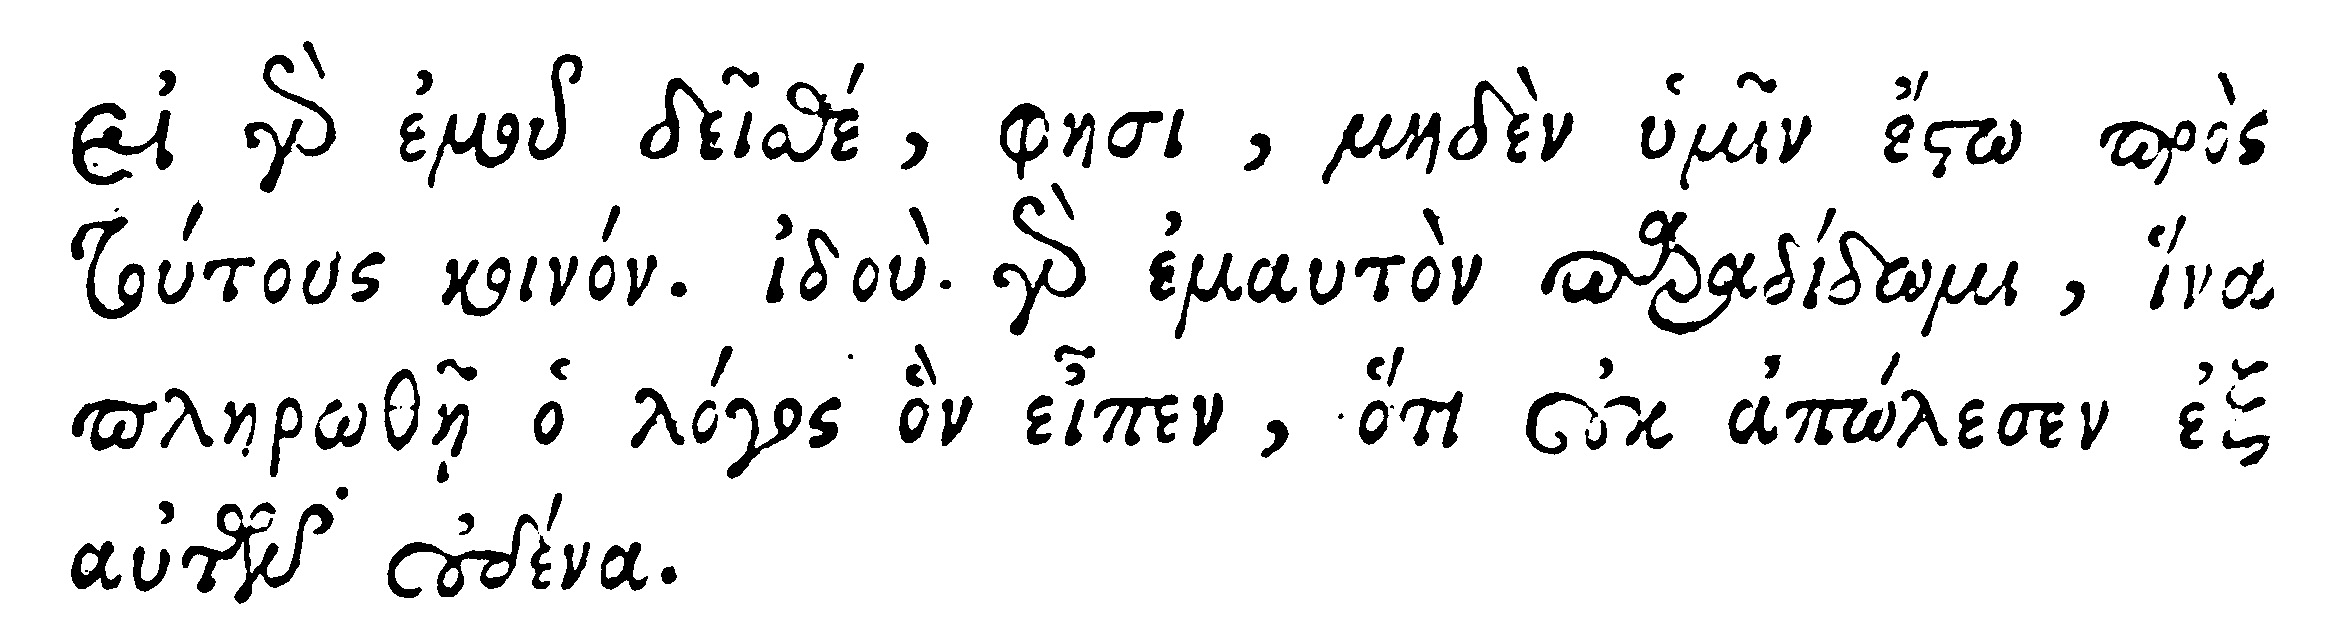 εἰ γὰρ ἐμοῦ δεῖσθέ, φησι, μηδὲν ὑμῖν ἔστω πρὸς
τούτους κοινόν. ἰδοὺ γὰρ ἐμαυτὸν παραδίδωμι, ἵνα
πληρωθῇ ὁ λόγος ὃν εἶπεν, ὅτι οὐκ ἀπώλεσεν ἐξ
αὐτῶν οὐδένα.